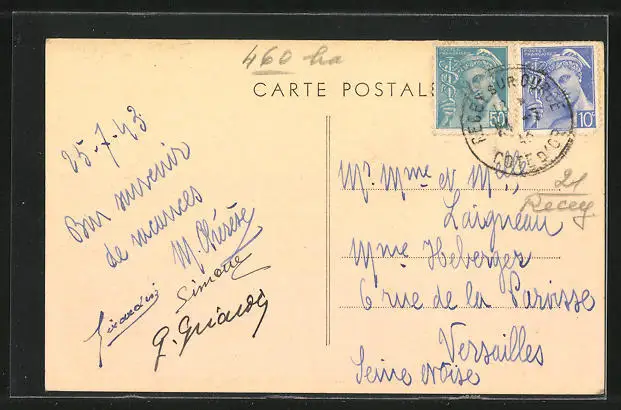 460 ha
CARTE POSTALE
50
10
RECEY SUR OURCE
COTE D'OR
25-7-43
Bon souvenir
de vacances
M. Thérèse
Simone
Mr. Mme et Mr,
Laigneau
Mme Heberger
6 rue de la Paroisse
Versailles
Seine et oise
21
Recey